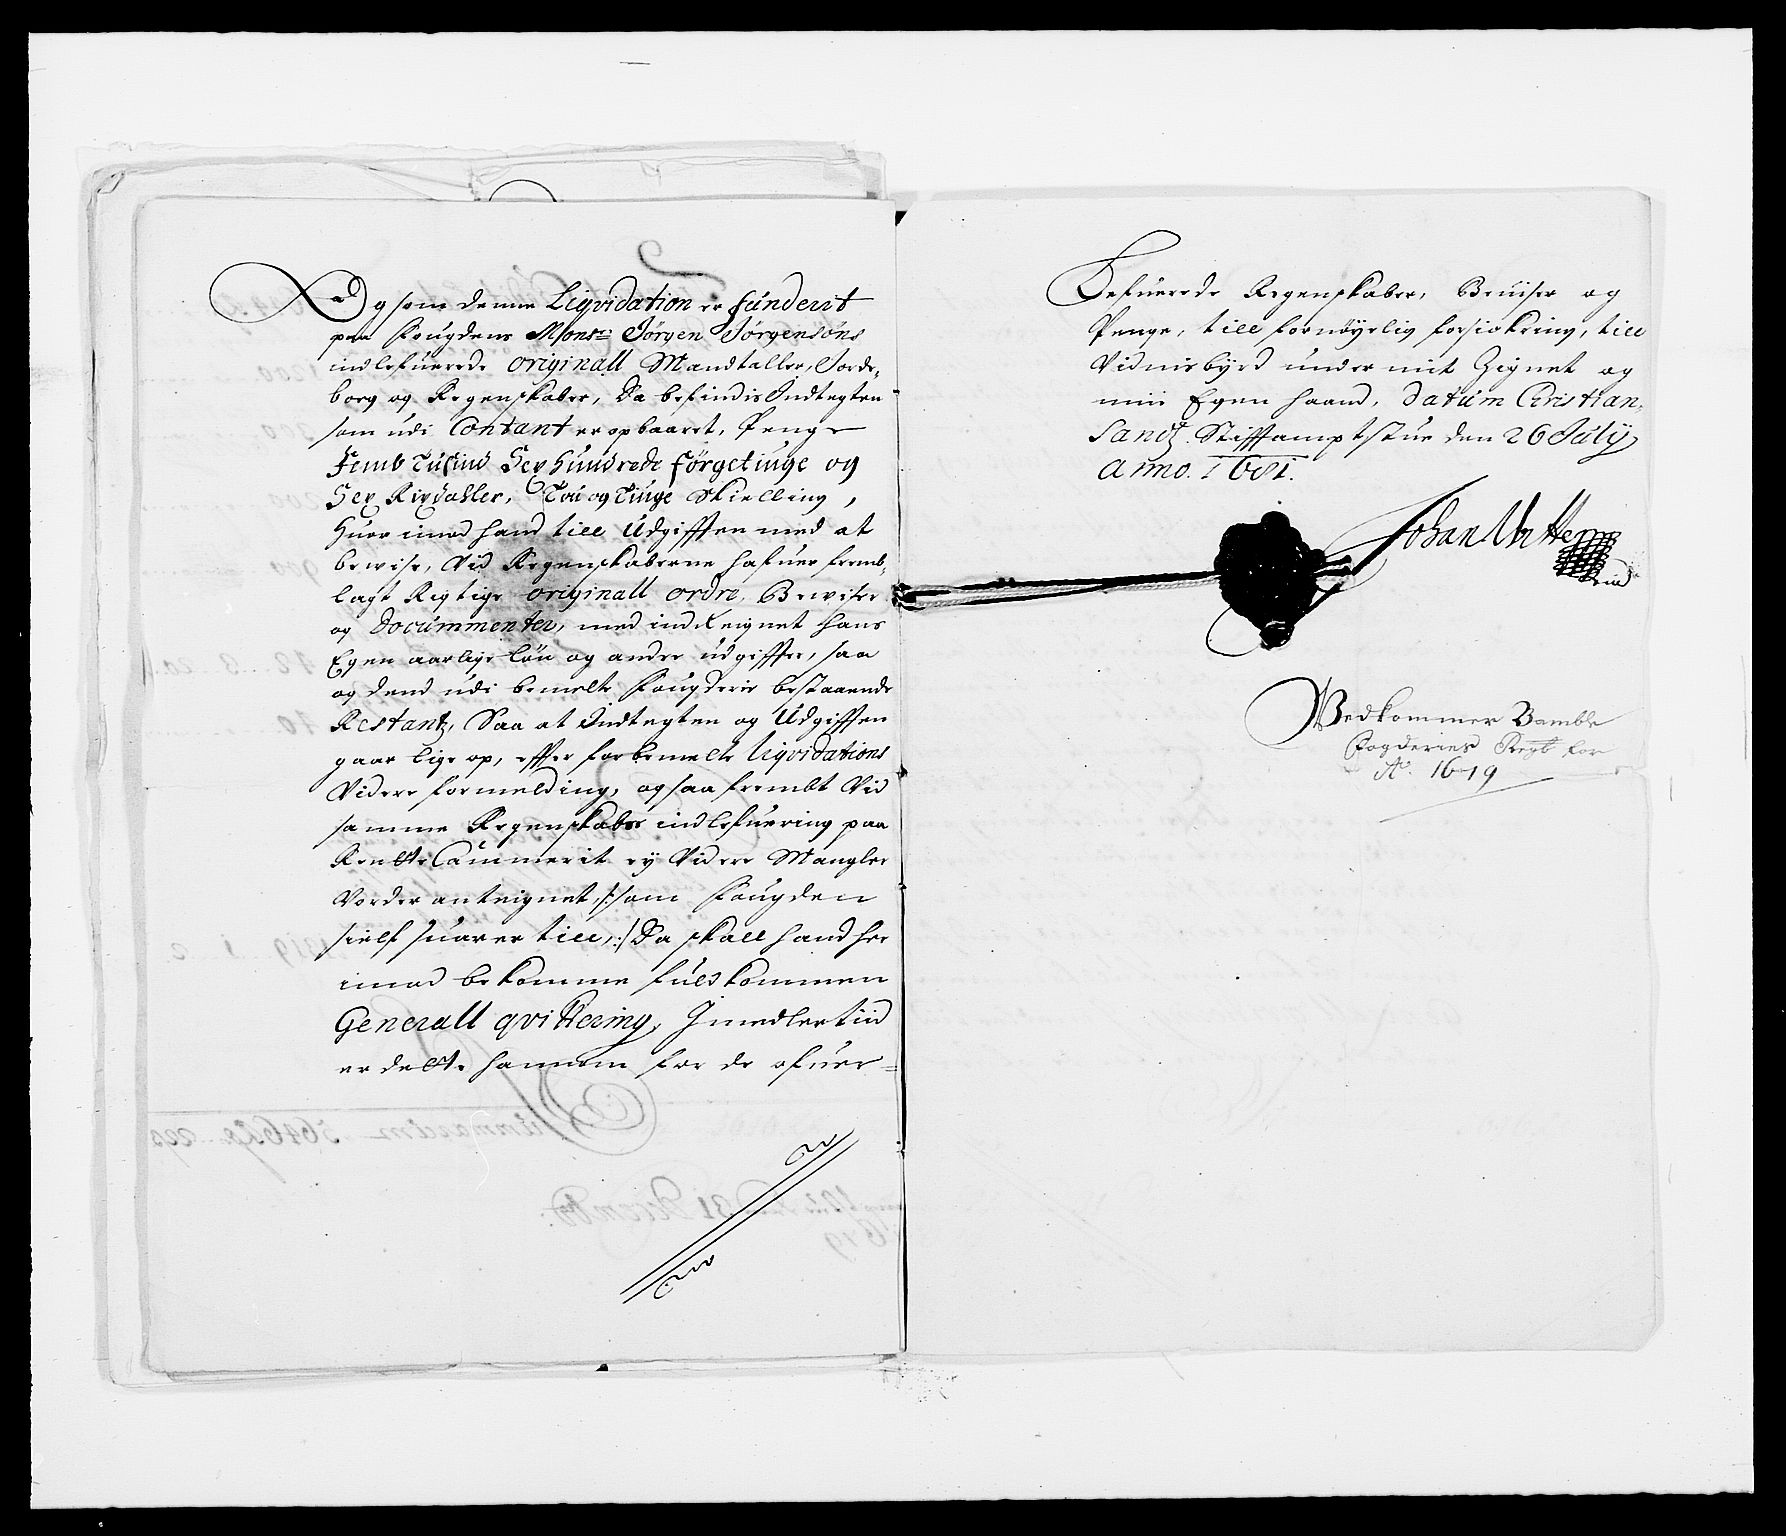 Og som denne Liqvidation er fundert
paa Fougdens Monsr: Jörgen Jörgensöns
indlefuerede originall Mandtaller, Jorde,
borg og Regenskaber, Da befindis Indtegten
som udi Contant er opbaaret, Penge
Femb Tusind Sex Hundrede förgetiuge og
Sex Rixdaller, Tou og Tiuge Skielling,
Huor imod hand till Udgifften med at
bewise, Vid Regenskaberne hafuer fremb,
lagt Rigtige originall ordre, Bewiser
og Docummenter, med indReignet hans
Egen aarlige Lön og andre udgiffter, saa
og dend udi bemelte Fougderie bestaaende
Restantz, Saa at Indtegten og Udgifften
gaar lige op, effter forbemelte Liqvidations
Videre formelding, og saa frembt Vid
samme Regenskabers indlefuering paa
Rentte Cammerit ey Videre Mangler
Vorder anteignet, /:som Fougden
sielf suarer till,:/ Da skall hand her
imod bekomme fuldkommen
Generall qvittering, Imedlertiid
er dette hannem for de ofuer=
Lefuerede Regenskaber, Beuiser og
Penge, till fornöyelig forsickring, till
Vidnisbyrd under mit Zignet og
min Egen haand, Datum Christian,
Sandz Stifftamptstue den 26 July
Anno. 1681.
Johan Vitten
Vedkommer Bamble
Fogderies Regb for
Ao. 1679